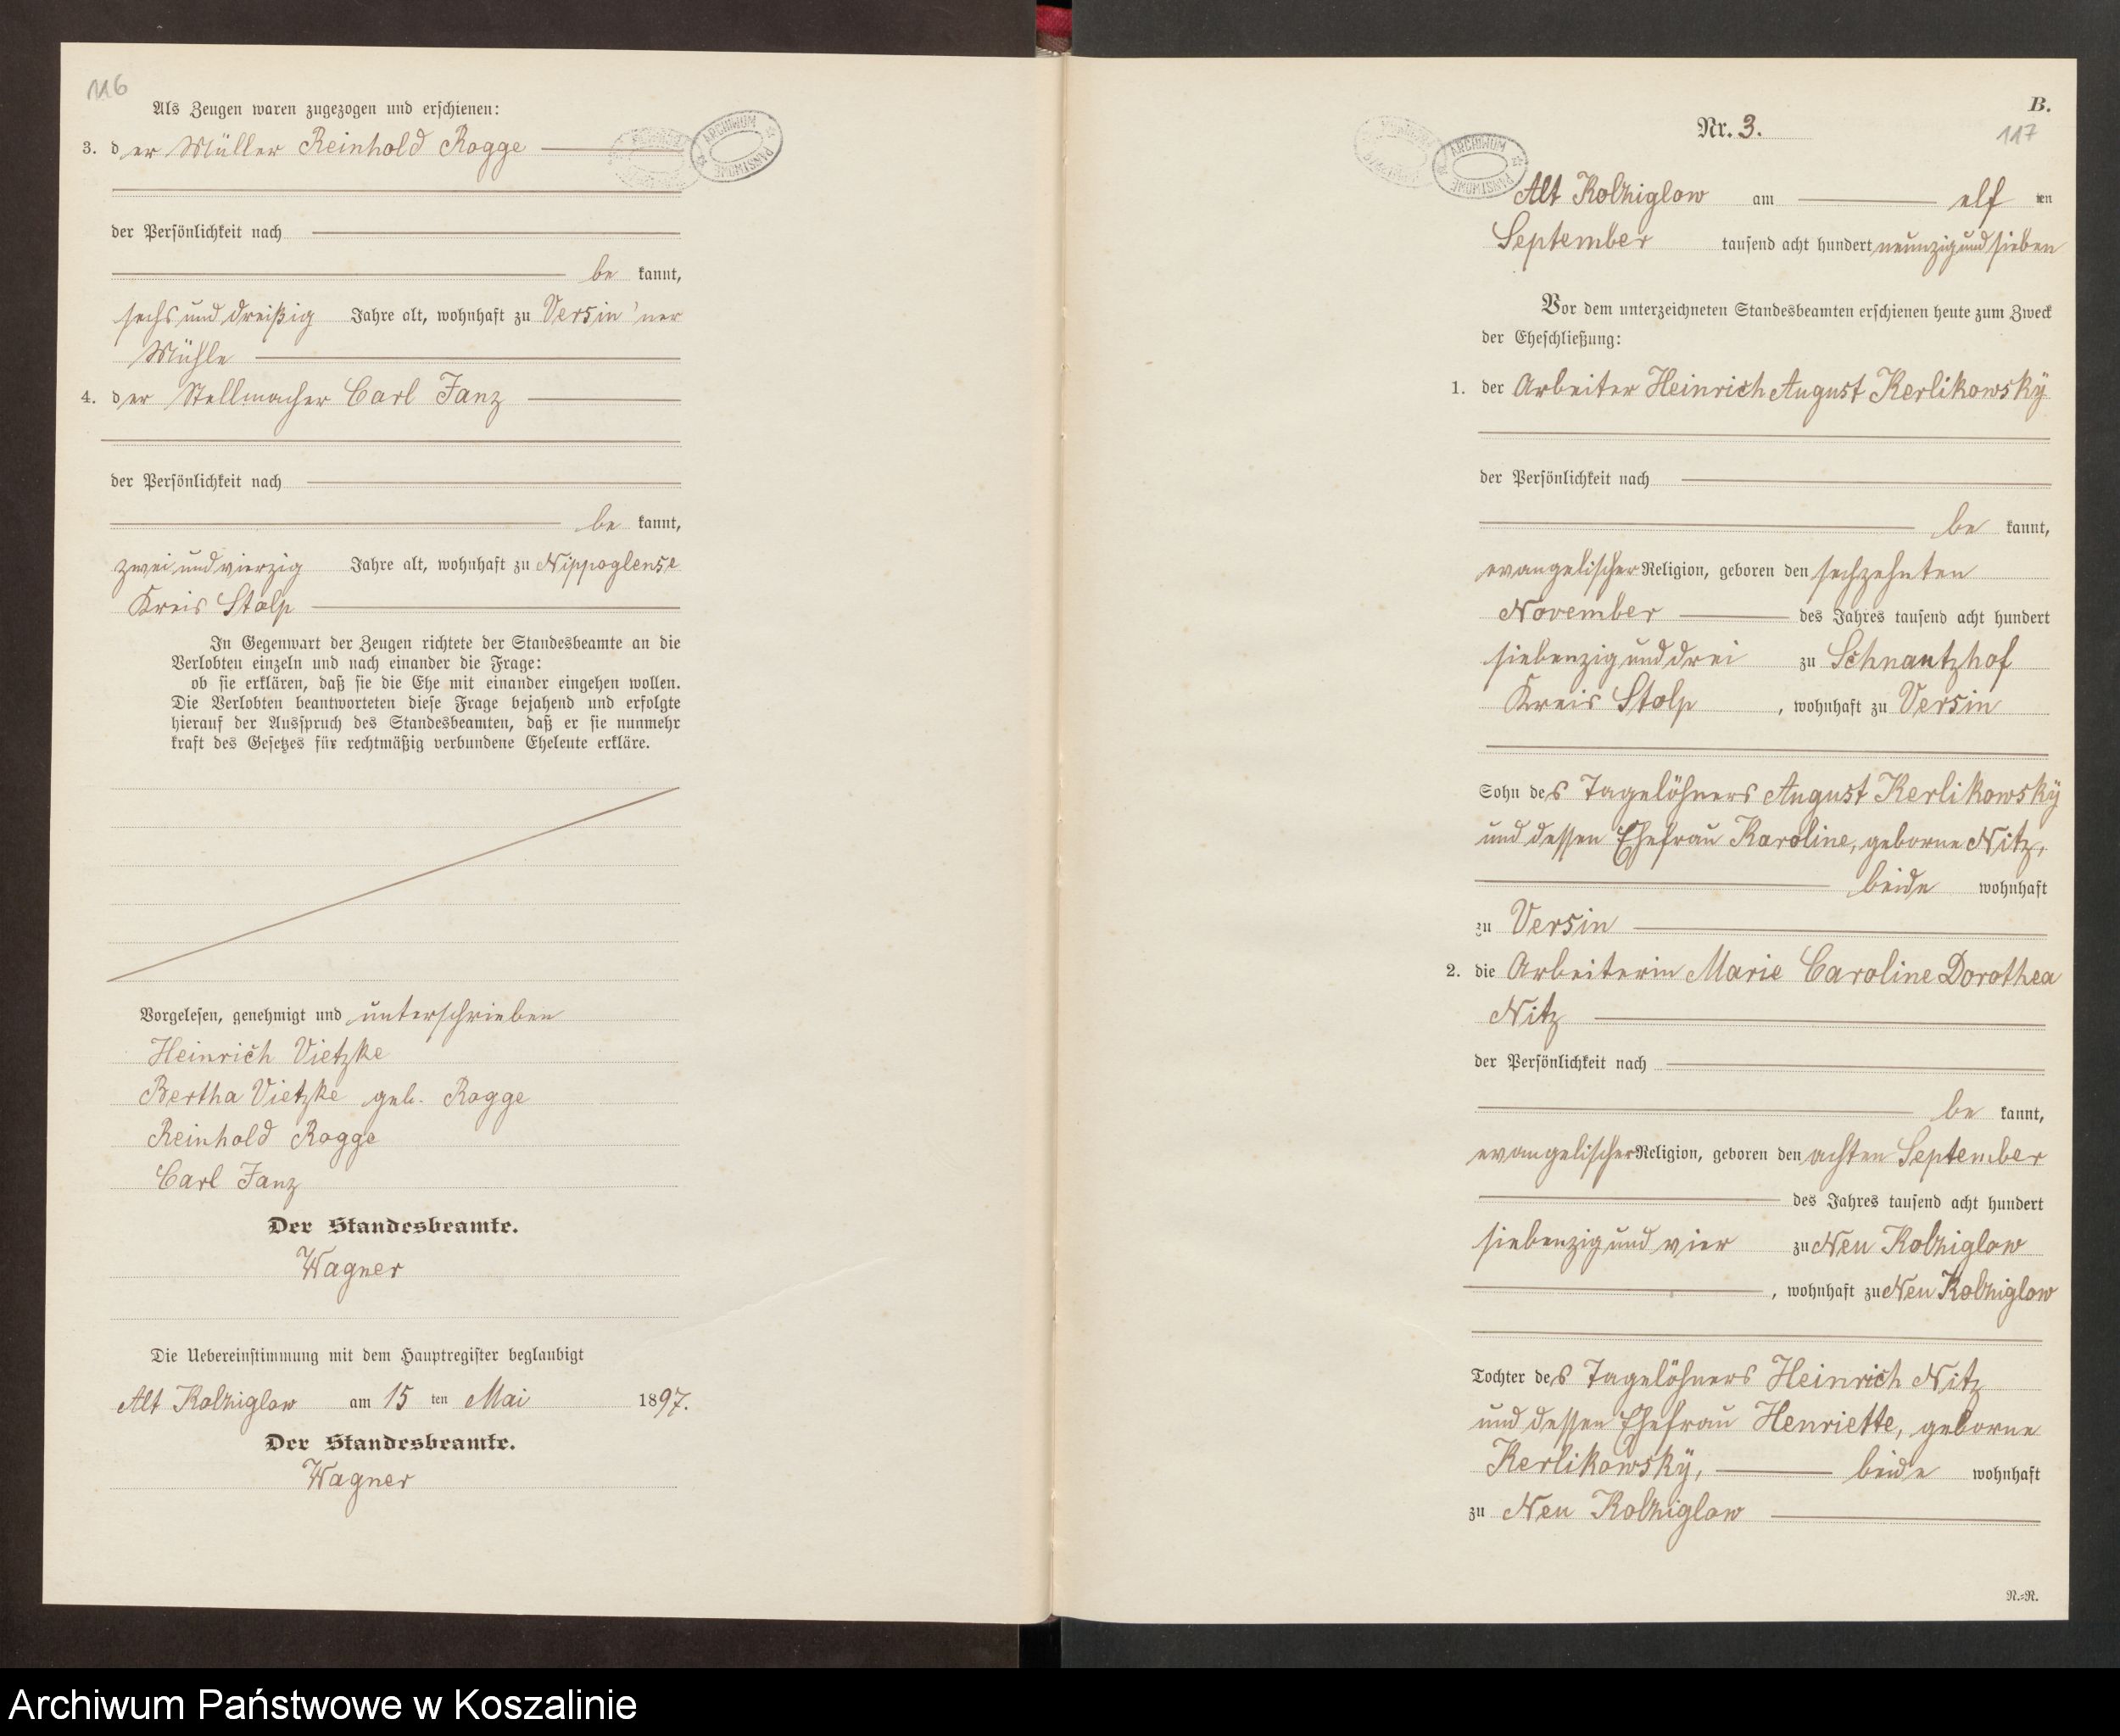 116
Als Zeugen waren zugezogen und erschienen:
3. der Müller Reinhold Rogge
der Persönlichkeit nach
be kannt,
sechs und dreißig Jahre alt, wohnhaft zu Versin'ner
Mühle
4. der Stellmacher Carl Janz
der Persönlichkeit nach
be kannt,
zwei und vierzig Jahre alt, wohnhaft zu Nippoglense
Kreis Stolp
In Gegenwart der Zeugen richtete der Standesbeamte an die
Verlobten einzeln und nach einander die Frage:
ob sie erklären, daß sie die Ehe mit einander eingehen wollen.
Die Verlobten beantworteten diese Frage bejahend und erfolgte
hierauf der Ausspruch des Standesbeamten, daß er sie nunmehr
kraft des Gesetzes für rechtmäßig verbundene Eheleute erkläre.
Vorgelesen, genehmigt und unterschrieben
Heinrich Vietzke
Bertha Vietzke geb. Rogge
Reinhold Rogge
Carl Janz
Der Standesbeamte.
Wagner
Die Uebereinstimmung mit dem Hauptregister beglaubigt
Alt Kolziglow am 15 ten Mai 1897.
Der Standesbeamte.
Wagner
ARCHIWUM PAŃSTWOWE
B.
117
Nr. 3.
ARCHIWUM PAŃSTWOWE
Alt Kolziglow am elf ten
September tausend acht hundert neunzig und sieben
Vor dem unterzeichneten Standesbeamten erschienen heute zum Zweck
der Eheschließung:
1. der Arbeiter Heinrich August Kerlikowsky
der Persönlichkeit nach
be kannt,
evangelischer Religion, geboren den sechzehnten
November des Jahres tausend acht hundert
siebenzig und drei zu Schnantzhof
Kreis Stolp, wohnhaft zu Versin
Sohn des Tagelöhners August Kerlikowsky
und dessen Ehefrau Karoline, geborne Nitz,
beide wohnhaft
zu Versin
2. die Arbeiterin Marie Caroline Dorothea
Nitz
der Persönlichkeit nach
be kannt,
evangelischer Religion, geboren den achten September
des Jahres tausend acht hundert
siebenzig und vier zu Neu Kolziglow
, wohnhaft zu Neu Kolziglow
Tochter des Tagelöhners Heinrich Nitz
und dessen Ehefrau Henriette, geborne
Kerlikowsky, beide wohnhaft
zu Neu Kolziglow
N.=N.
Archiwum Państwowe w Koszalinie